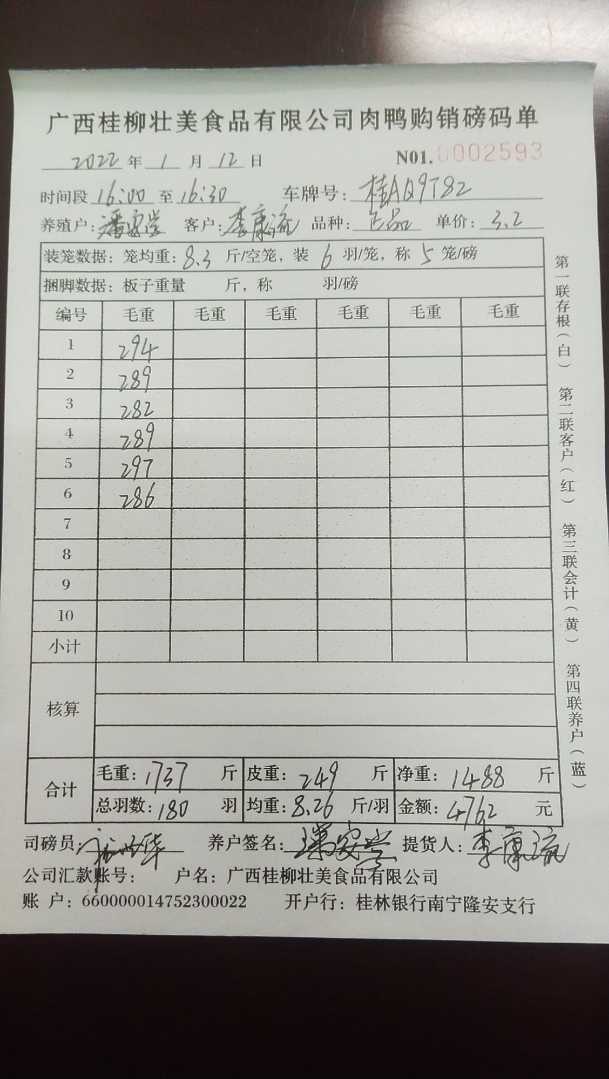 广西桂柳壮美食品有限公司肉鸭购销磅码单
2022 年 1 月 12 日 N01.0002593
时间段 16:00 至 16:30 车牌号: 桂AQ9T82
养殖户: 客户: 李康流 品种: 正品 单价: 3.2
装笼数据: 笼均重: 8.3 斤/空笼, 装 6 羽/笼, 称 5 笼/磅
捆脚数据: 板子重量 斤, 称 羽/磅
编号 毛重 毛重 毛重 毛重 毛重 毛重
1 294
2 289
3 282
4 289
5 297
6 286
7
8
9
10
小计
核算
合计 毛重: 1737 斤 皮重: 249 斤 净重: 1488 斤
总羽数: 180 羽 均重: 8.26 斤/羽 金额: 4762 元
司磅员: 养户签名: 提货人: 李康流
公司汇款账号: 户名: 广西桂柳壮美食品有限公司
账 户: 660000014752300022 开户行: 桂林银行南宁隆安支行
第一联存根(白) 第二联客户(红) 第三联会计(黄) 第四联养户(蓝)